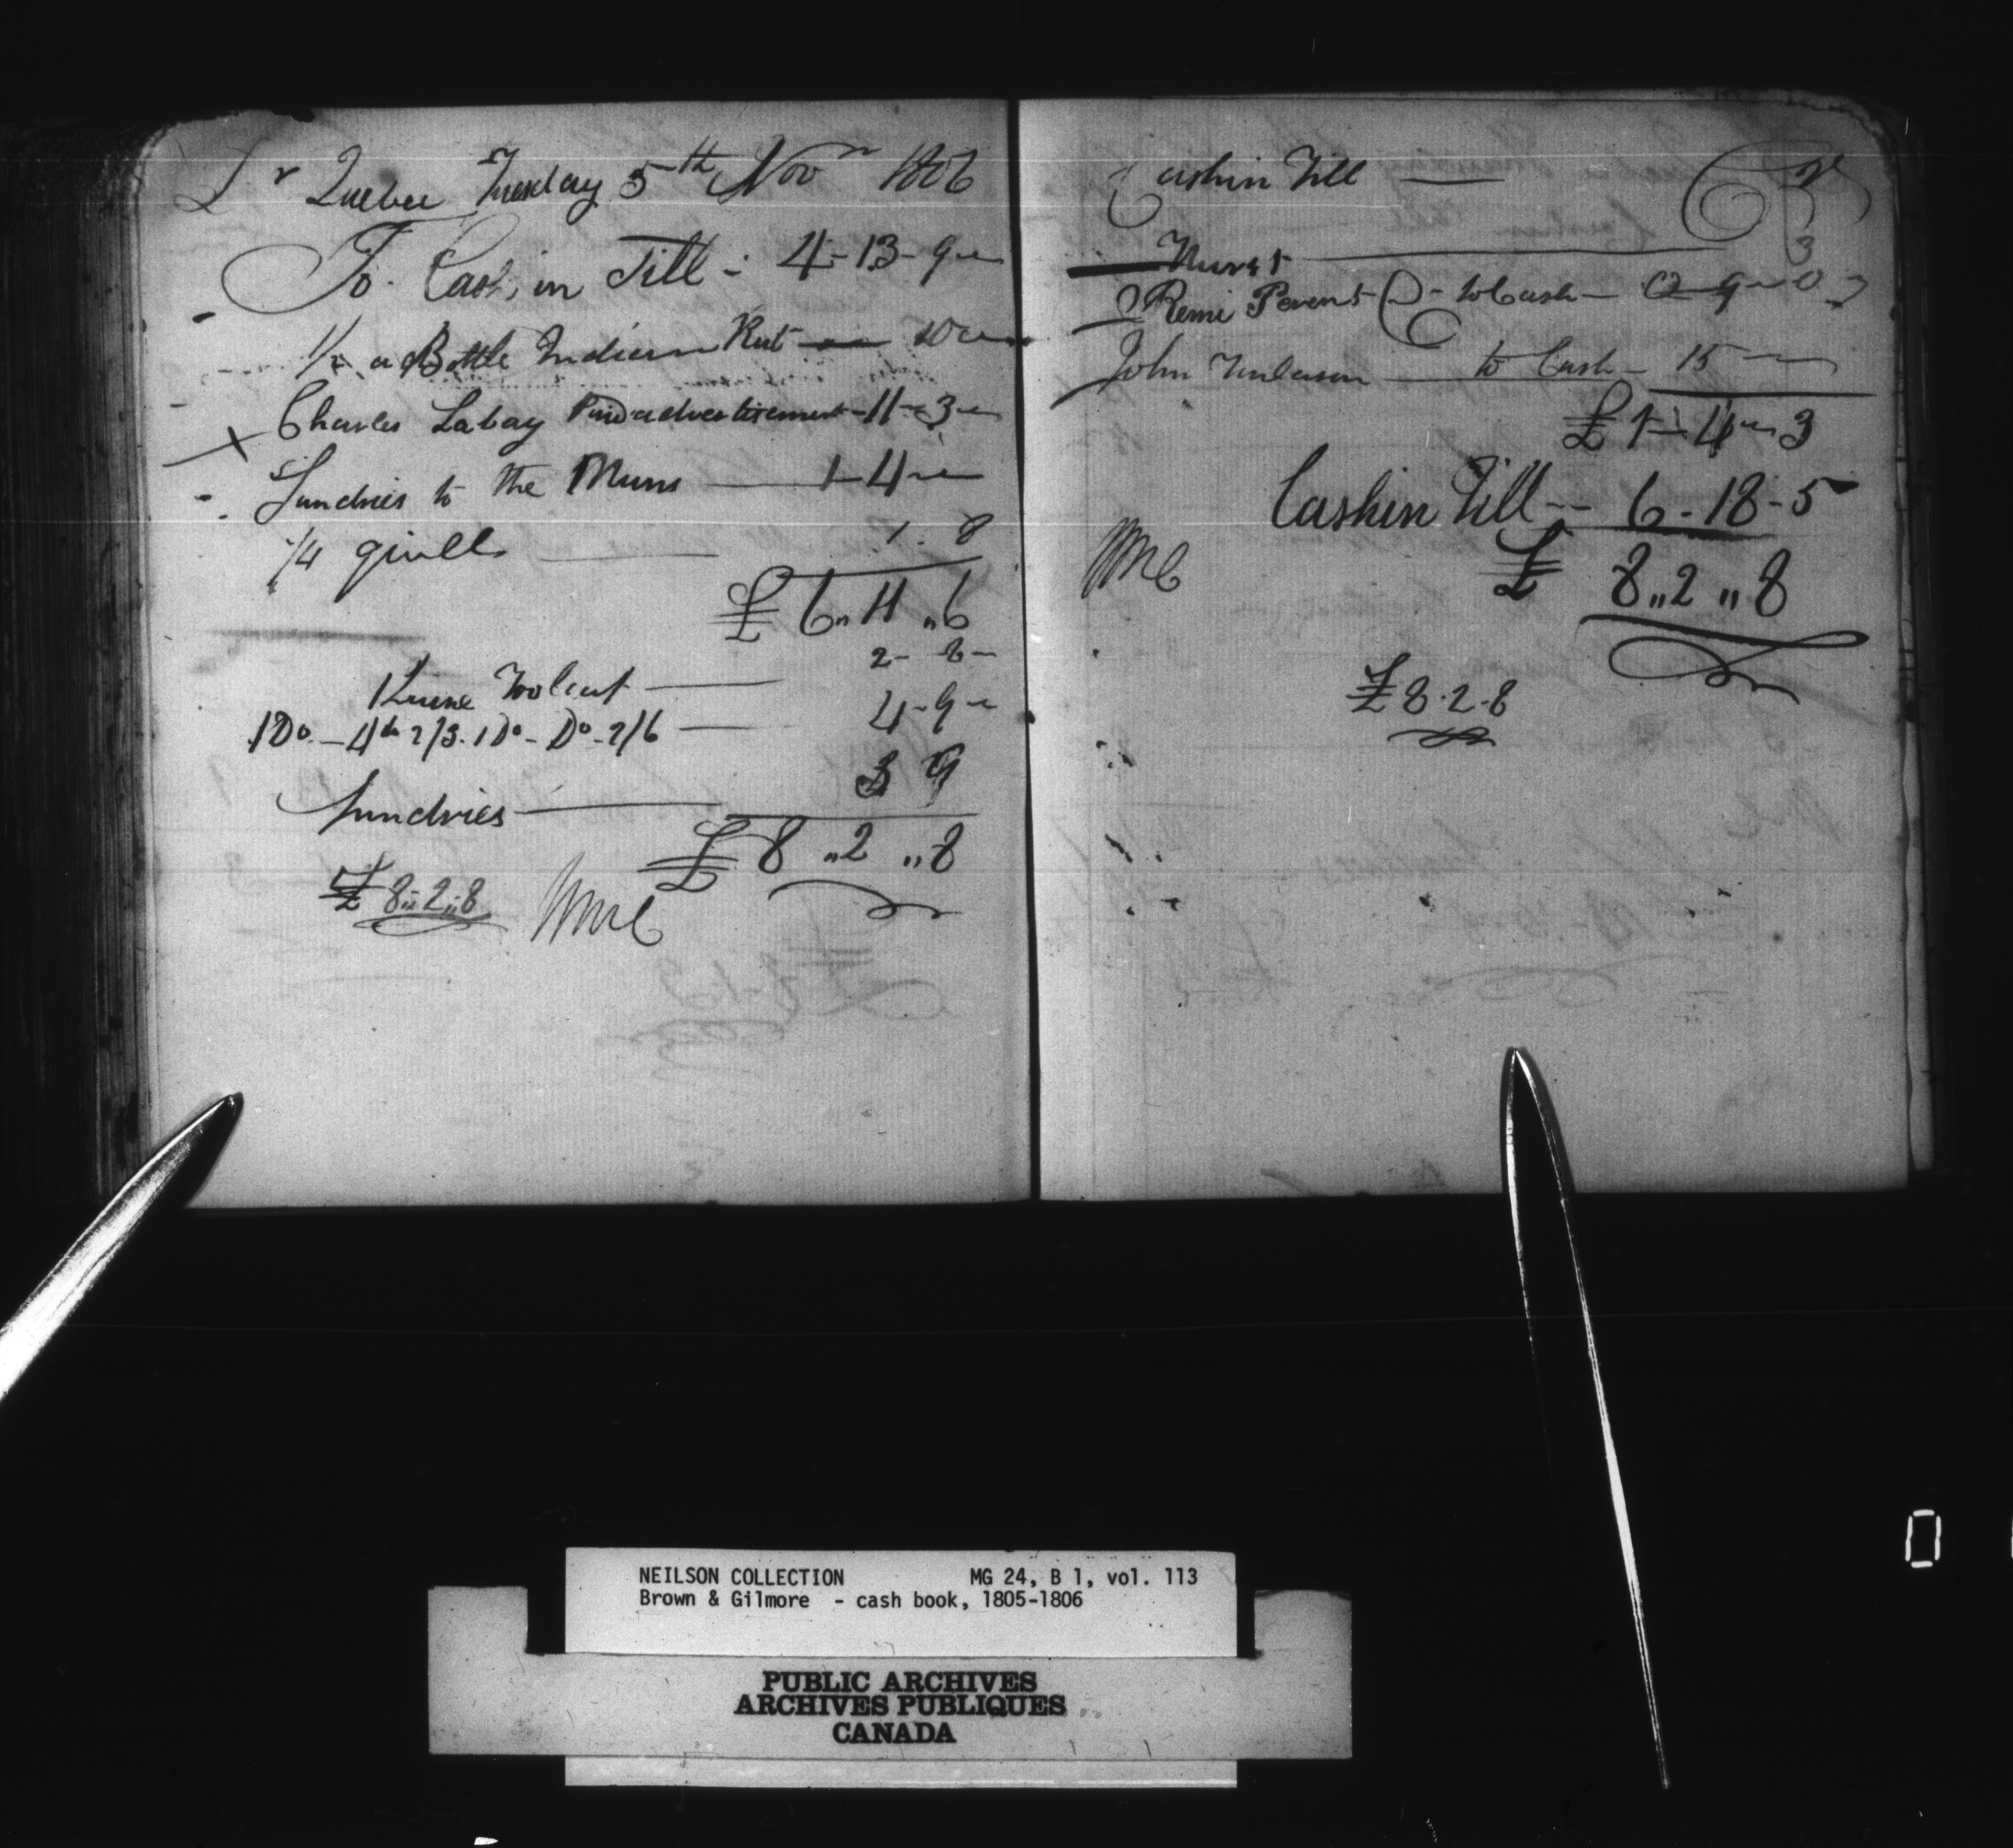 Dr Quebec Tuesday 5th Novr 1806
To Cash in Till - 4-13-9
1/2 a Bottle Indian Rut 10
Charles Labay Paid advertisement - 11-3
Sundries to the Nuns 1-4
1/4 quills 1.8
£ 6„11„6
2-8-
1 Do. - 4to 2/3. 1 Do - Do - 2/6 4-9
Sundries 3 9
£ 8„2„8
£ 8„2„8 WmC
Cash in Till Cr
3
Remi Perent - to Cash - 9 0
John to Cash - 15
£ 1-4-3
Cash in Till - 6-18-5
WmC £ 8„2„8
£ 8.2.8
NEILSON COLLECTION MG 24, B 1, vol. 113
Brown & Gilmore - cash book, 1805-1806
PUBLIC ARCHIVES
ARCHIVES PUBLIQUES
CANADA
0